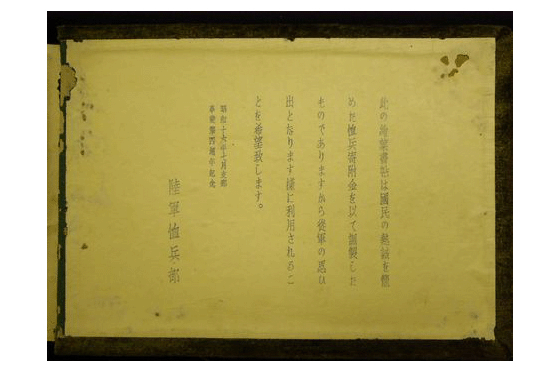 此の絵葉書帖は国民の熱誠を籠
めた恤兵寄附金を以て調製した
ものでありますから従軍の思ひ
出となります様に利用されるこ
とを希望致します。
昭和十六年七月支那
事変第四周年記念
陸軍恤兵部